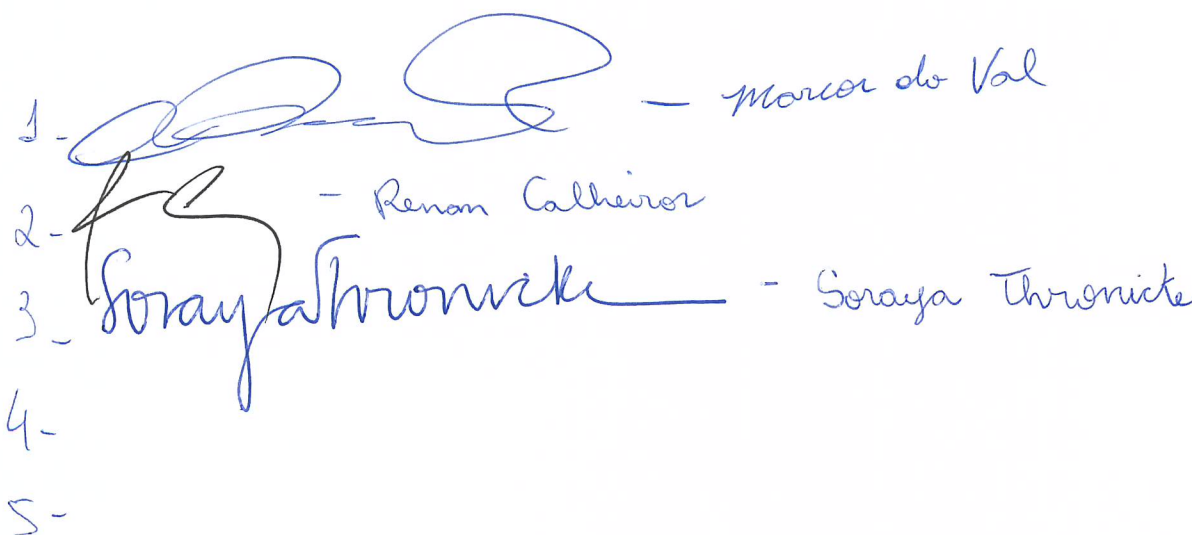 1- - Marcos do Val
2- - Renan Calheiros
3- Soraya Thronicke - Soraya Thronicke
4-
5-